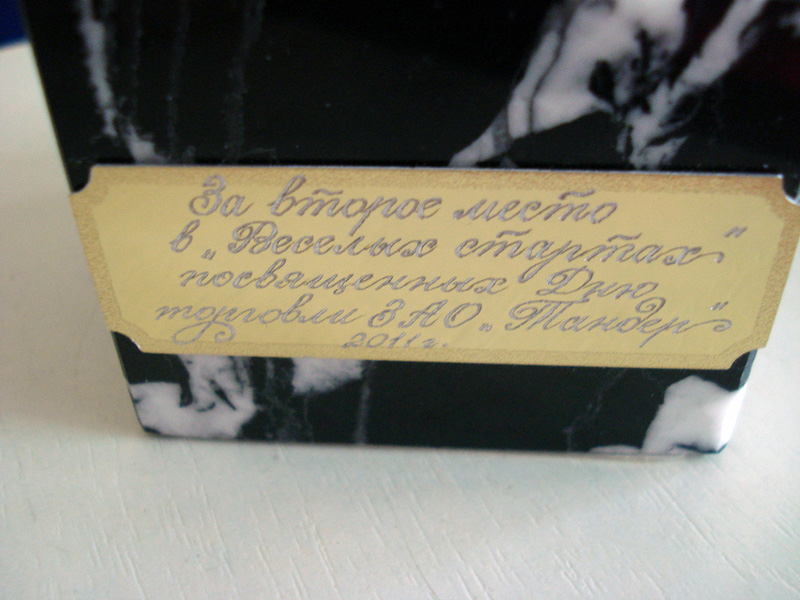 За второе место
в „Веселых стартах"
посвященных Дню
торговли ЗАО „Тандер"
2011г.